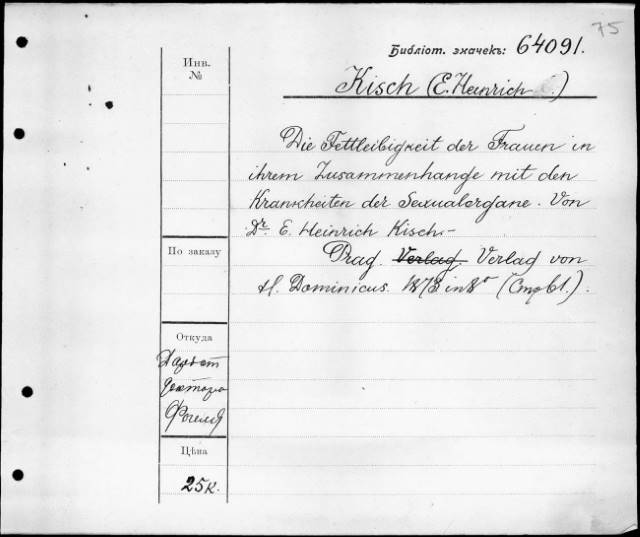 75
Библіот. значекъ: 64091.
Инв.
№
Kisch (E. Heinrich)
Die Fettleibigkeit der Frauen in
ihrem Zusammenhange mit den
Krankheiten der Sexualorgane. Von
Dr. E. Heinrich Kisch.-
Prag. Verlag. Verlag von
H. Dominicus. 1873 in 8° (Стр 61.).
По заказу
Откуда
Даръ от
доктора
Фогеля
Цѣна
25к.